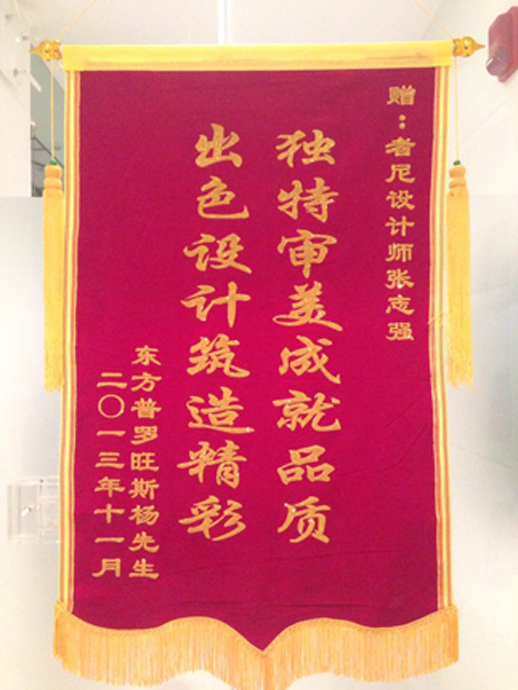 赠：者尼设计师张志强
独特审美成就品质
出色设计筑造精彩
东方普罗旺斯杨先生
二〇一三年十一月